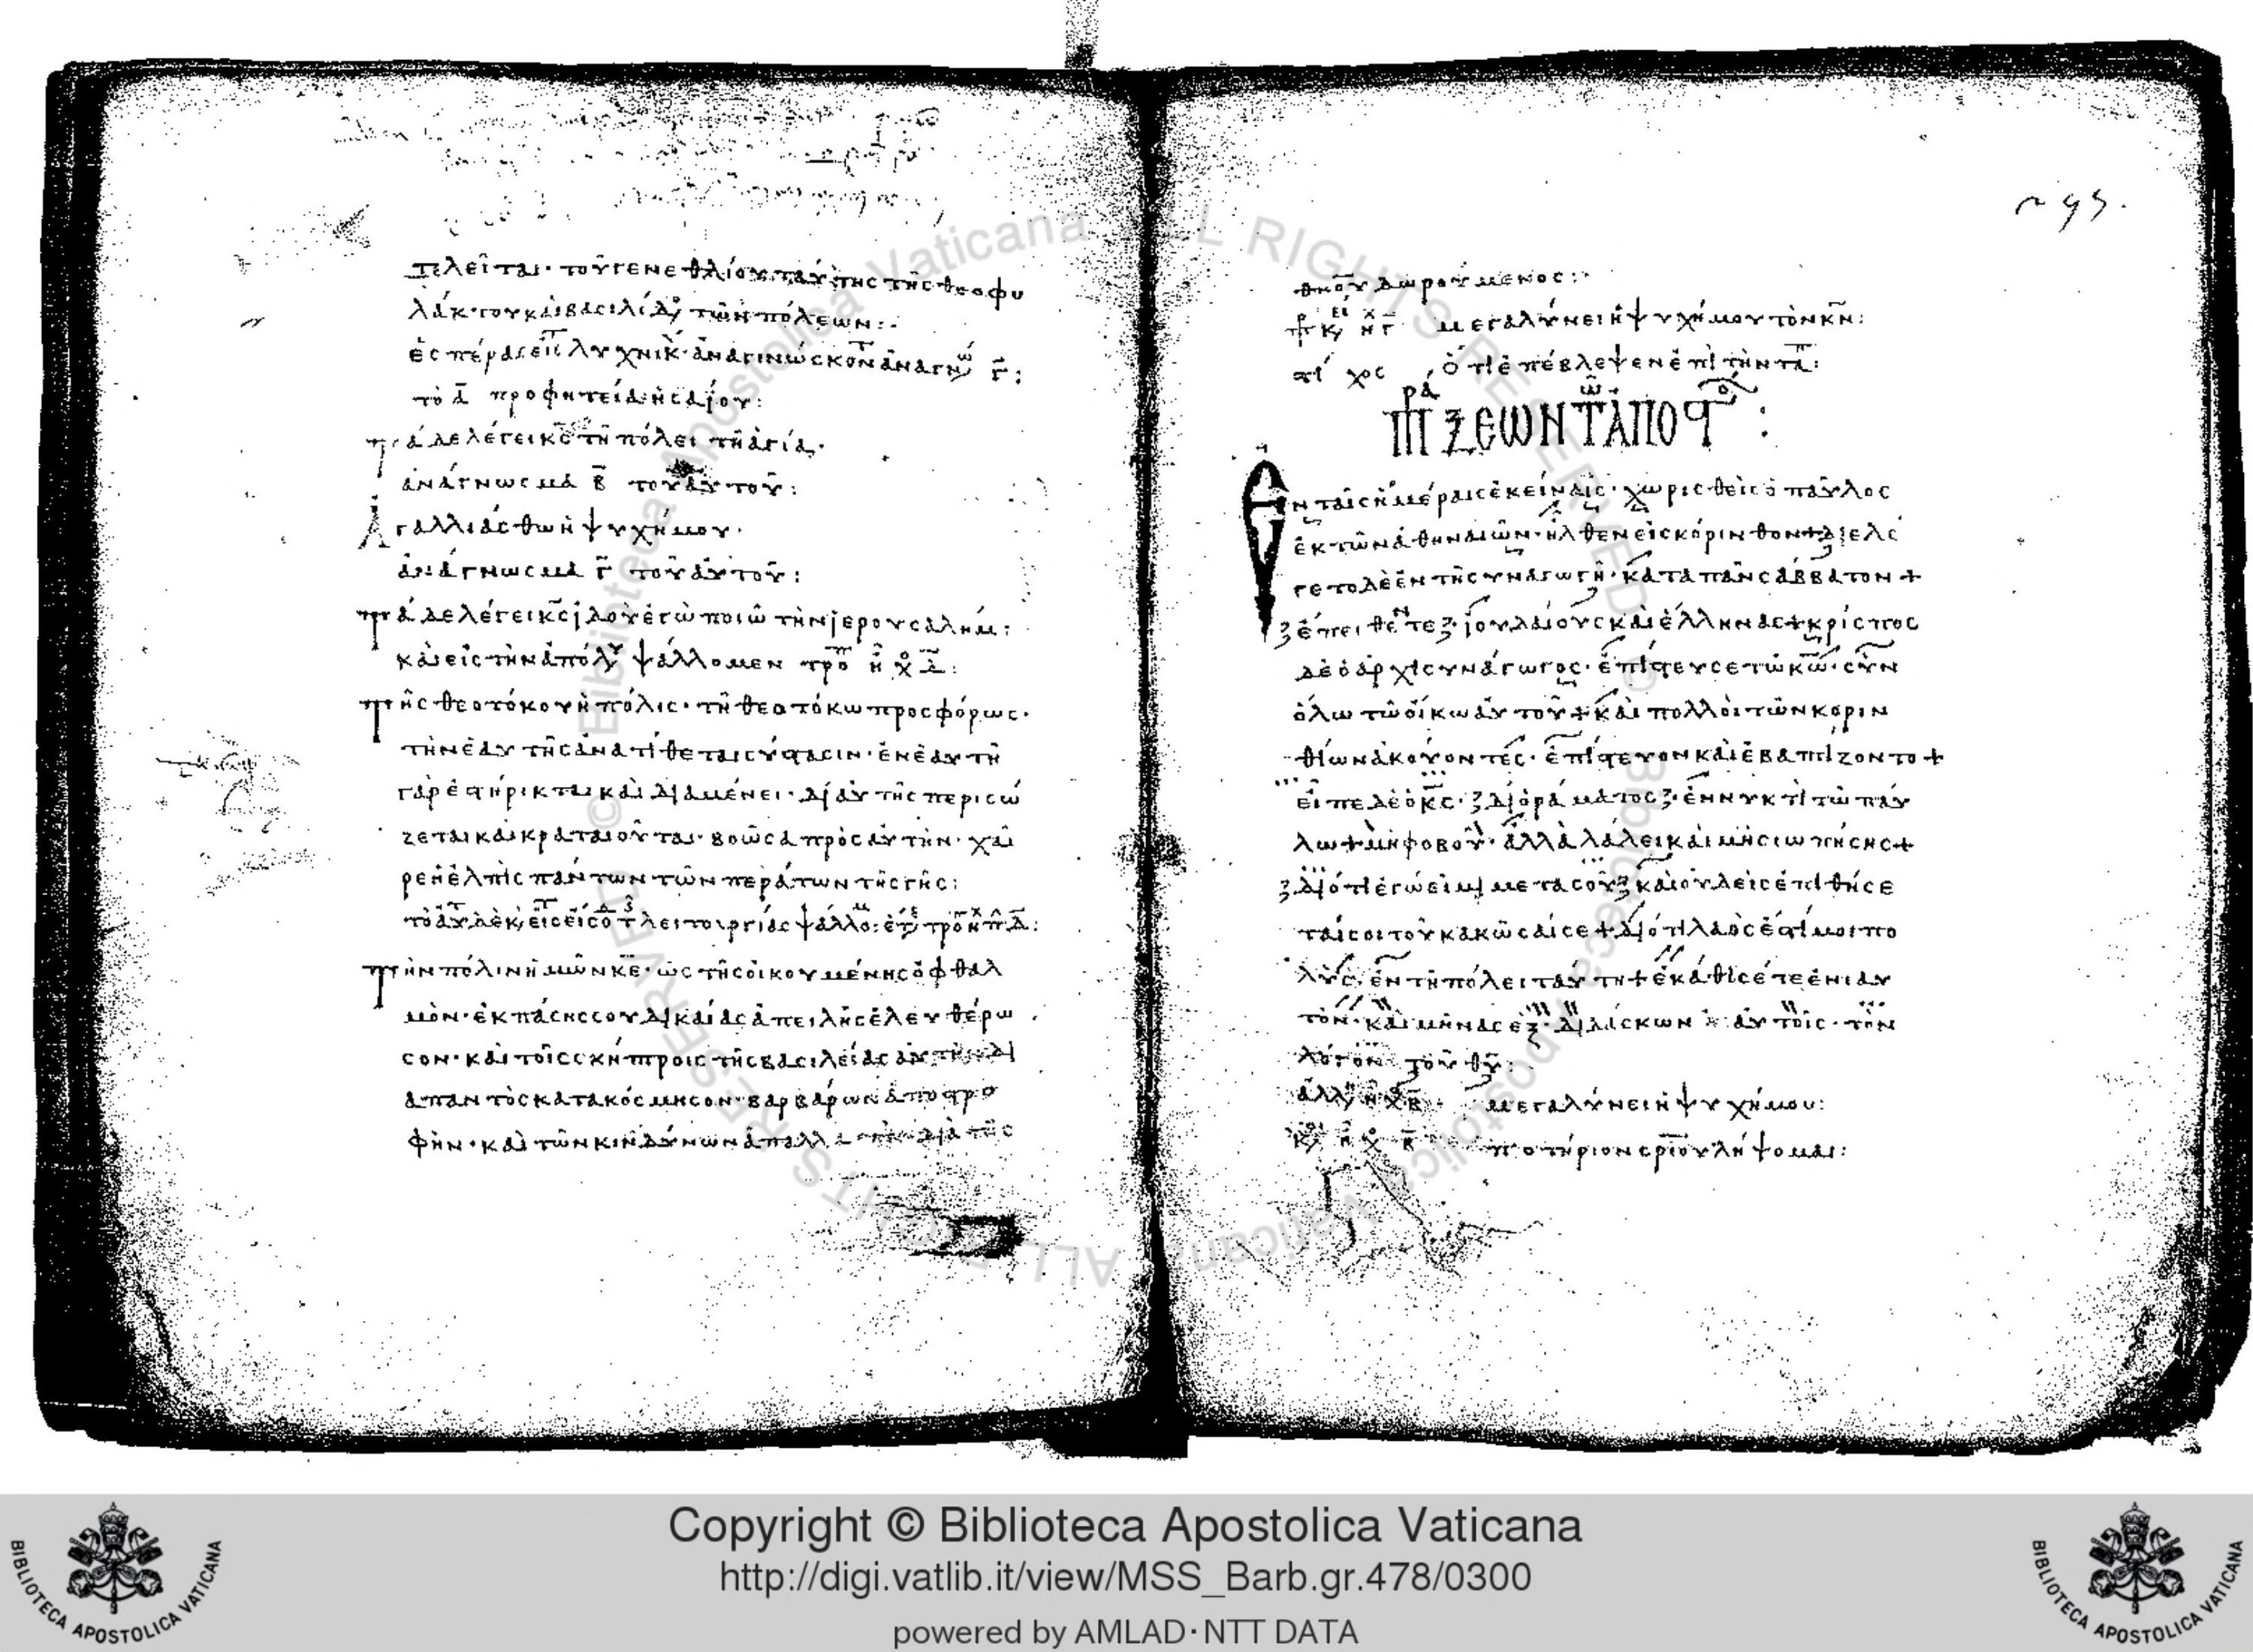 τελεῖται· τοῦ γενεθλίου ταύτης τῆς θεοφυ
λάκτου καὶ βασιλίδ τῶν πόλεων:
τὸ α προφητεία ἡσαΐου:
τάδε λέγει κς τῆ πόλει τῆ ἁγία·
ἀνάγνωσμα β τοῦ αὐτοῦ:
Ἀγαλλιάσθω ἡ ψυχή μου·
ἀνάγνωσμα γ τοῦ αὐτοῦ:
τάδε λέγει κς ἰδοὺ ἐγὼ ποιῶ τὴν ἰερουσαλήμ:
καὶ εἰς τὴν ἀπόλυ ψάλλομεν τρο ἠχ δ:
τῆς θεοτόκου ἡ πόλις· τῆ θεοτόκω προσφόρως·
τὴν ἑαυτῆς ἀνατίθεται σύστασιν· ἐν ἑαυτῆ
γὰρ ἐστήρικται καὶ διαμένει· δι αὐτῆς περισώ
ζεται καὶ κραταιοῦται· βοῶσα πρὸς αὐτὴν· χαῖ
ρε ἡ ἐλπὶς πάντων τῶν περάτων τῆς γῆς:
τὴν πόλιν ἡμῶν κε· ὡς τῆς οἰκουμένης ὀφθαλ
μὸν· ἐκ πάσης σου δικαίας ἀπειλῆς ἐλευθέρω
σον· καὶ τοῖς σκήπτροις τῆς βασιλείας αὐτὴν δι
απαντὸς κατακόσμησον· βαρβάρων ἀποστρο
φὴν· καὶ τῶν κινδύνων ἀπαλλ διὰ τῆς
θκου δωρούμενος:
μεγαλύνει ἡ ψυχή μου τὸν κν:
στίχος ὅτι ἐπέβλεψεν ἐπὶ τὴν τα:
ΠΡΑΞΕΩΝ ΤΩΝ ΑΠΟΣΤΟ:
Ἐν ταῖς ἡμέραις ἐκείναις· χωρισθεὶς ὁ παῦλος
ἐκ τῶν ἀθηναίων· ἦλθεν εἰς κόρινθον + διελέ
γετο δὲ ἐν τῆ συναγωγῆ· κατὰ πᾶν σάββατον +
ἔπειθέν τε ἰουδαίους καὶ ἕλληνας + κρίσπος
δὲ ὁ ἀρχισυνάγωγος· ἐπίστευσε τῶ κω· σὺν
ὅλω τῶ οἴκω αὐτοῦ + καὶ πολλοὶ τῶν κοριν
θίων ἀκούοντες· ἐπίστευον καὶ ἐβαπτίζοντο +
εἶπε δὲ ὁ κς· δι ὁράματος ἐν νυκτὶ τῶ παύ
λω + μὴ φοβοῦ· ἀλλὰ λάλει καὶ μὴ σιωπήσης +
διότι ἐγώ εἰμι μετὰ σοῦ καὶ οὐδεὶς ἐπιθήσε
ταί σοι τοῦ κακῶσαί σε + διότι λαὸς ἐστί μοι πο
λὺς· ἐν τῆ πόλει ταύτη + ἐκάθισέ τε ἐνιαυ
τὸν· καὶ μῆνας ἓξ· διδάσκων ἐν αὐτοῖς· τὸν
λόγον τοῦ θυ:
ἀλλ ἠχ β μεγαλύνει ἡ ψυχή μου:
κ ἠχ β ποτήριον σριου λήψομαι:
Copyright © Biblioteca Apostolica Vaticana
http://digi.vatlib.it/view/MSS_Barb.gr.478/0300
powered by AMLAD·NTT DATA
BIBLIOTECA APOSTOLICA VATICANA
BIBLIOTECA APOSTOLICA VATICANA